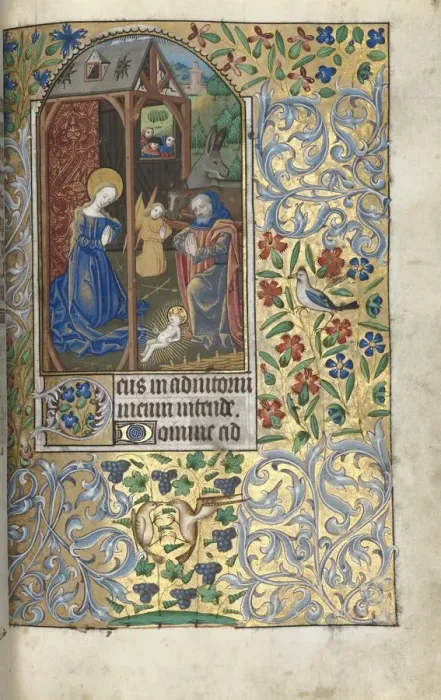 Deus in adiutoriu
meum intende.
Domine ad